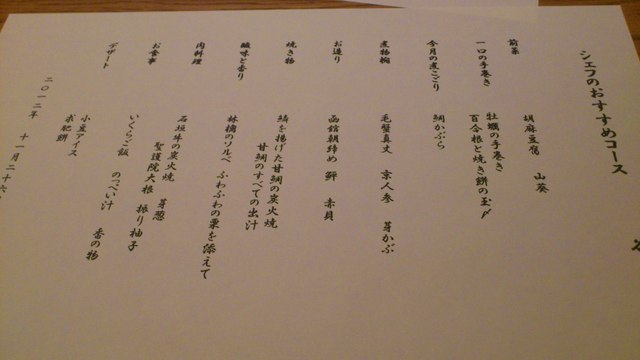 シェフのおすすめコース
前菜 胡麻豆腐 山葵
一口の手巻き 牡蠣の手巻き
百合根と焼き餅の玉〆
今月の煮こごり 鯛かぶら
煮物椀 毛蟹真丈 京人参 芽かぶ
お造り 函館朝締め 鮃 赤貝
焼き物 鱗を揚げた甘鯛の炭火焼
甘鯛のすべての出汁
酸味と香り 林檎のソルベ ふわふわの栗を添えて
肉料理 石垣牛の炭火焼 芽葱
聖護院大根 振り柚子
お食事 いくらご飯 のっぺい汁 香の物
デザート 小豆アイス
求肥餅
二〇一二年 十一月二十六